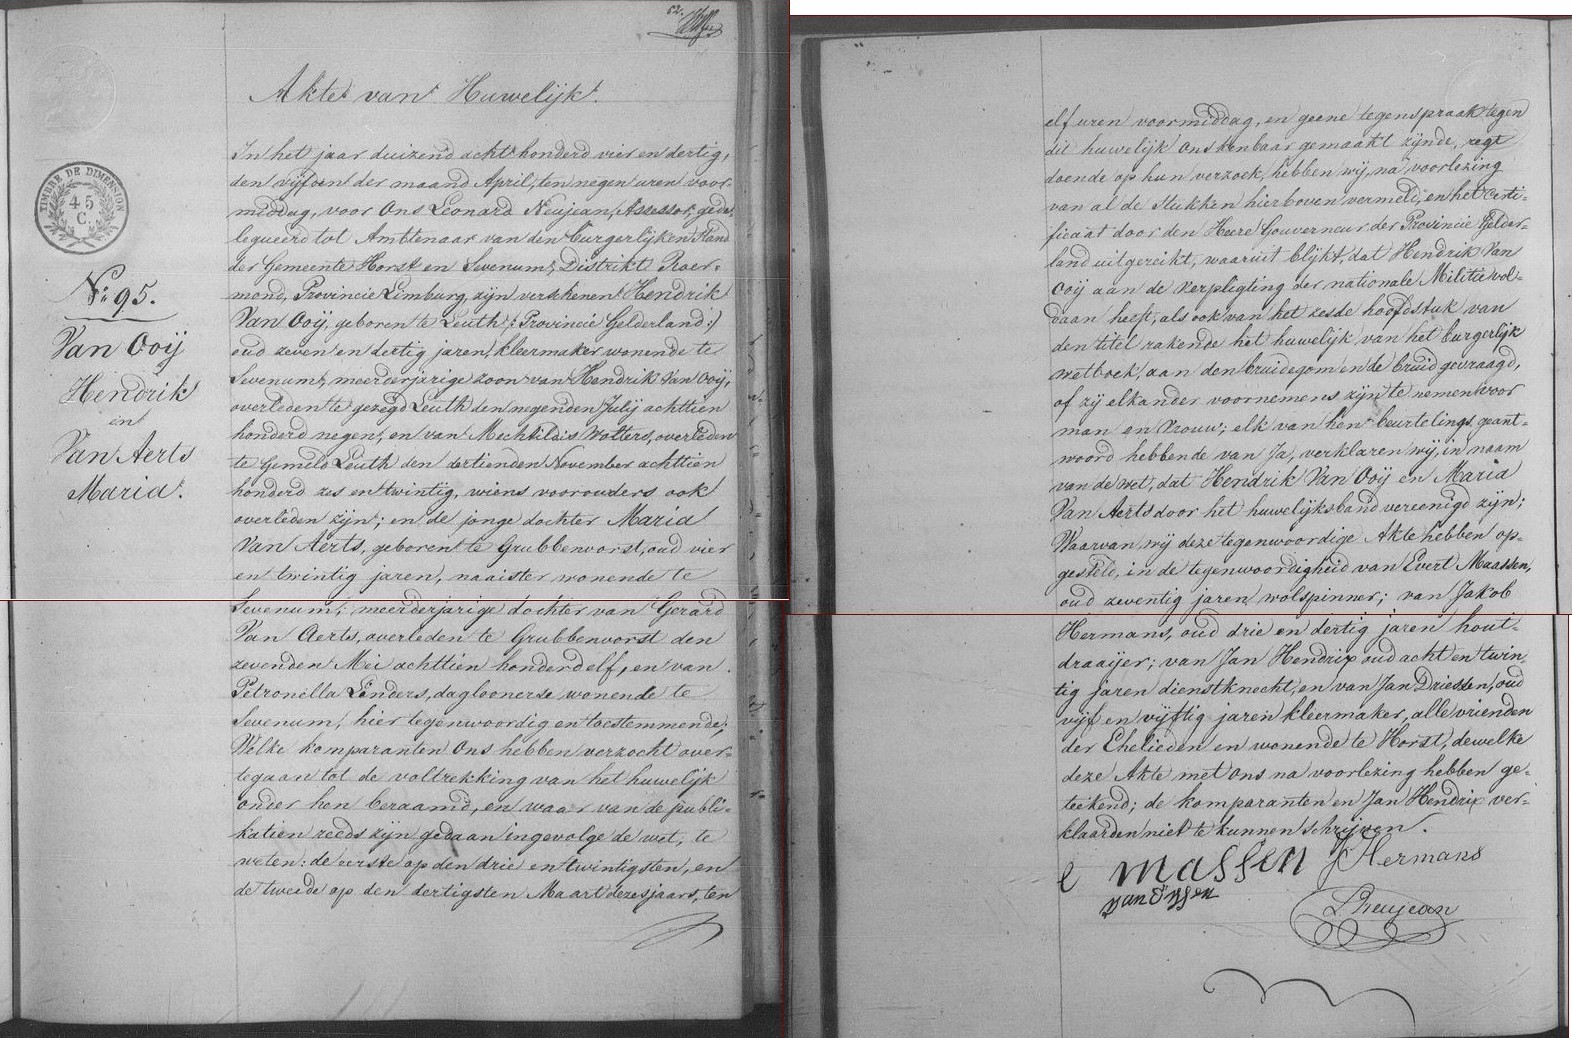 52.
Akte van Huwelijk.
TIMBRE DE DIMENSION
45
C.
No. 95.
Van Ooij
Hendrik
en
Van Aerts
Maria.
In het jaar duizend acht honderd vier en dertig,
den vijfden der maand April, ten negen uren voor-
middag, voor Ons Leonard Neujean, Assessor, gede-
legueerd tot Ambtenaar van den burgerlijken Stand
der Gemeente Horst en Sevenum, Distrikt Roer-
mond, Provincie Limburg, zijn verschenen Hendrik
Van Ooij, geboren te Leuth (: Provincie Gelderland :)
oud zeven en dertig jaren, kleermaker wonende te
Sevenum, meerderjarige zoon van Hendrik Van Ooij,
overleden te gezegd Leuth den negenden Julij achttien
honderd negen, en van Mechtildis Wolters, overleden
te gemeld Leuth den dertienden November achttien
honderd zes en twintig, wiens voorouders ook
overleden zijn; en de jonge dochter Maria
Van Aerts, geboren te Grubbenvorst, oud vier
en twintig jaren, naaister wonende te
Sevenum; meerderjarige dochter van Gerard
Van Aerts, overleden te Grubbenvorst den
zevenden Mei achttien honderd elf, en van
Petronella Linders, dagloonerse wonende te
Sevenum, hier tegenwoordig en toestemmende;
Welke komparanten Ons hebben verzocht over-
tegaan tot de voltrekking van het huwelijk
onder hen beraamd, en waar van de publi-
katien reeds zijn gedaan ingevolge de wet, te
weten: de eerste op den drie en twintigsten, en
de tweede op den dertigsten Maart dezes jaars, ten
elf uren voormiddag, en geene tegenspraak tegen
dit huwelijk Ons kenbaar gemaakt zijnde, regt
doende op hun verzoek, hebben wij, na voorlezing
van al de Stukken hierboven vermeld, en het Certi-
ficaat door den Heere Gouverneur der Provincie Gelder-
land uitgereikt, waaruit blijkt, dat Hendrik Van
Ooij aan de verpligting der nationale Militie vol-
daan heeft, als ook van het zesde hoofdstuk van
den titel rakende het huwelijk van het burgerlijk
wetboek, aan den bruidegom en de bruid gevraagd,
of zij elkander voornemens zijn te nemen voor
man en vrouw; elk van hen beurtelings geant-
woord hebbende van Ja, verklaren wij, in naam
van de wet, dat Hendrik Van Ooij en Maria
Van Aerts door het huwelijksband vereenigd zijn;
Waarvan wij deze tegenwoordige Akte hebben op-
gesteld, in de tegenwoordigheid van Evert Maassen,
oud zeventig jaren wolspinner; van Jakob
Hermans, oud drie en dertig jaren hout-
draaijer; van Jan Hendrix oud acht en twin
tig jaren dienstknecht, en van Jan Driessen, oud
vijf en vijftig jaren kleermaker, alle vrienden
der Ehelieden en wonende te Horst, dewelke
deze Akte met Ons na voorlezing hebben ge-
teekend; de komparanten en Jan Hendrix ver-
klaarden niet te kunnen schrijven.
e massen J Hermans
L Neujean